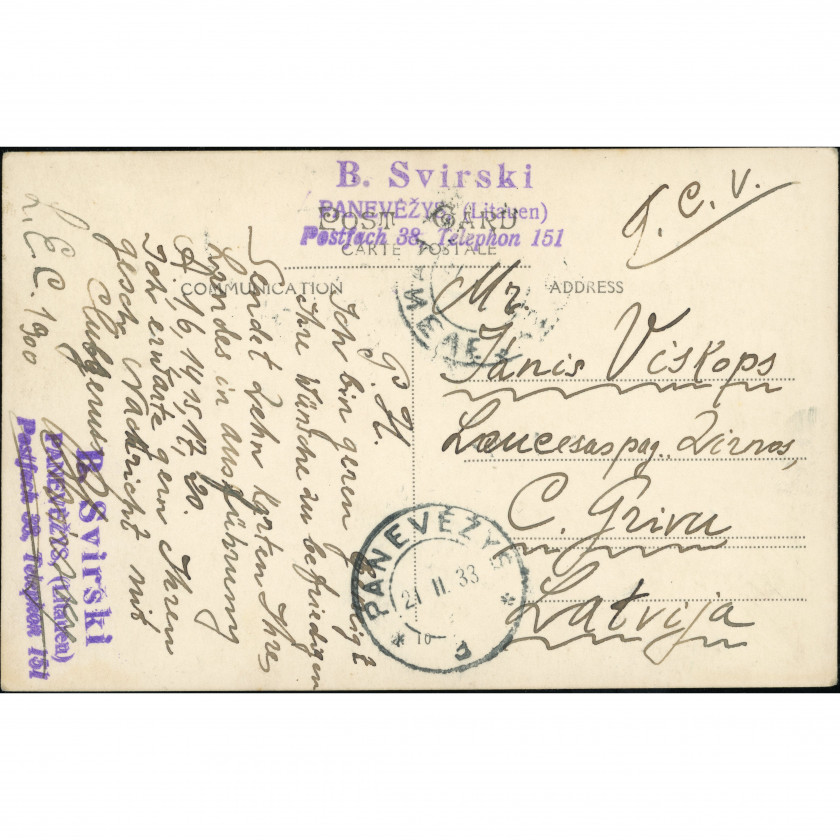 B. Svirski
PANEVĖŽYS, (Litauen)
Postfach 38, Telephon 151
POST CARD
CARTE POSTALE
COMMUNICATION
ADDRESS
T. C. V.
Mr
Jānis Viskops
Laucesas pag. Zirnos,
C. Grīvu
Latvija
P. H.
Ich bin geren geneigt
Ihre Wünsche zu befriedigen
Sendet zehn Karten Ihres
Landes in ausführung
A. 16, 14, 15, 17, 20.
Ich erwarte gern Ihren
gesch. Nachricht mit
Clubgruss
L.E.C. 1900
B. Svirski
PANEVĖŽYS, (Litauen)
Postfach 38, Telephon 151
PANEVĖŽYS
21 II 33